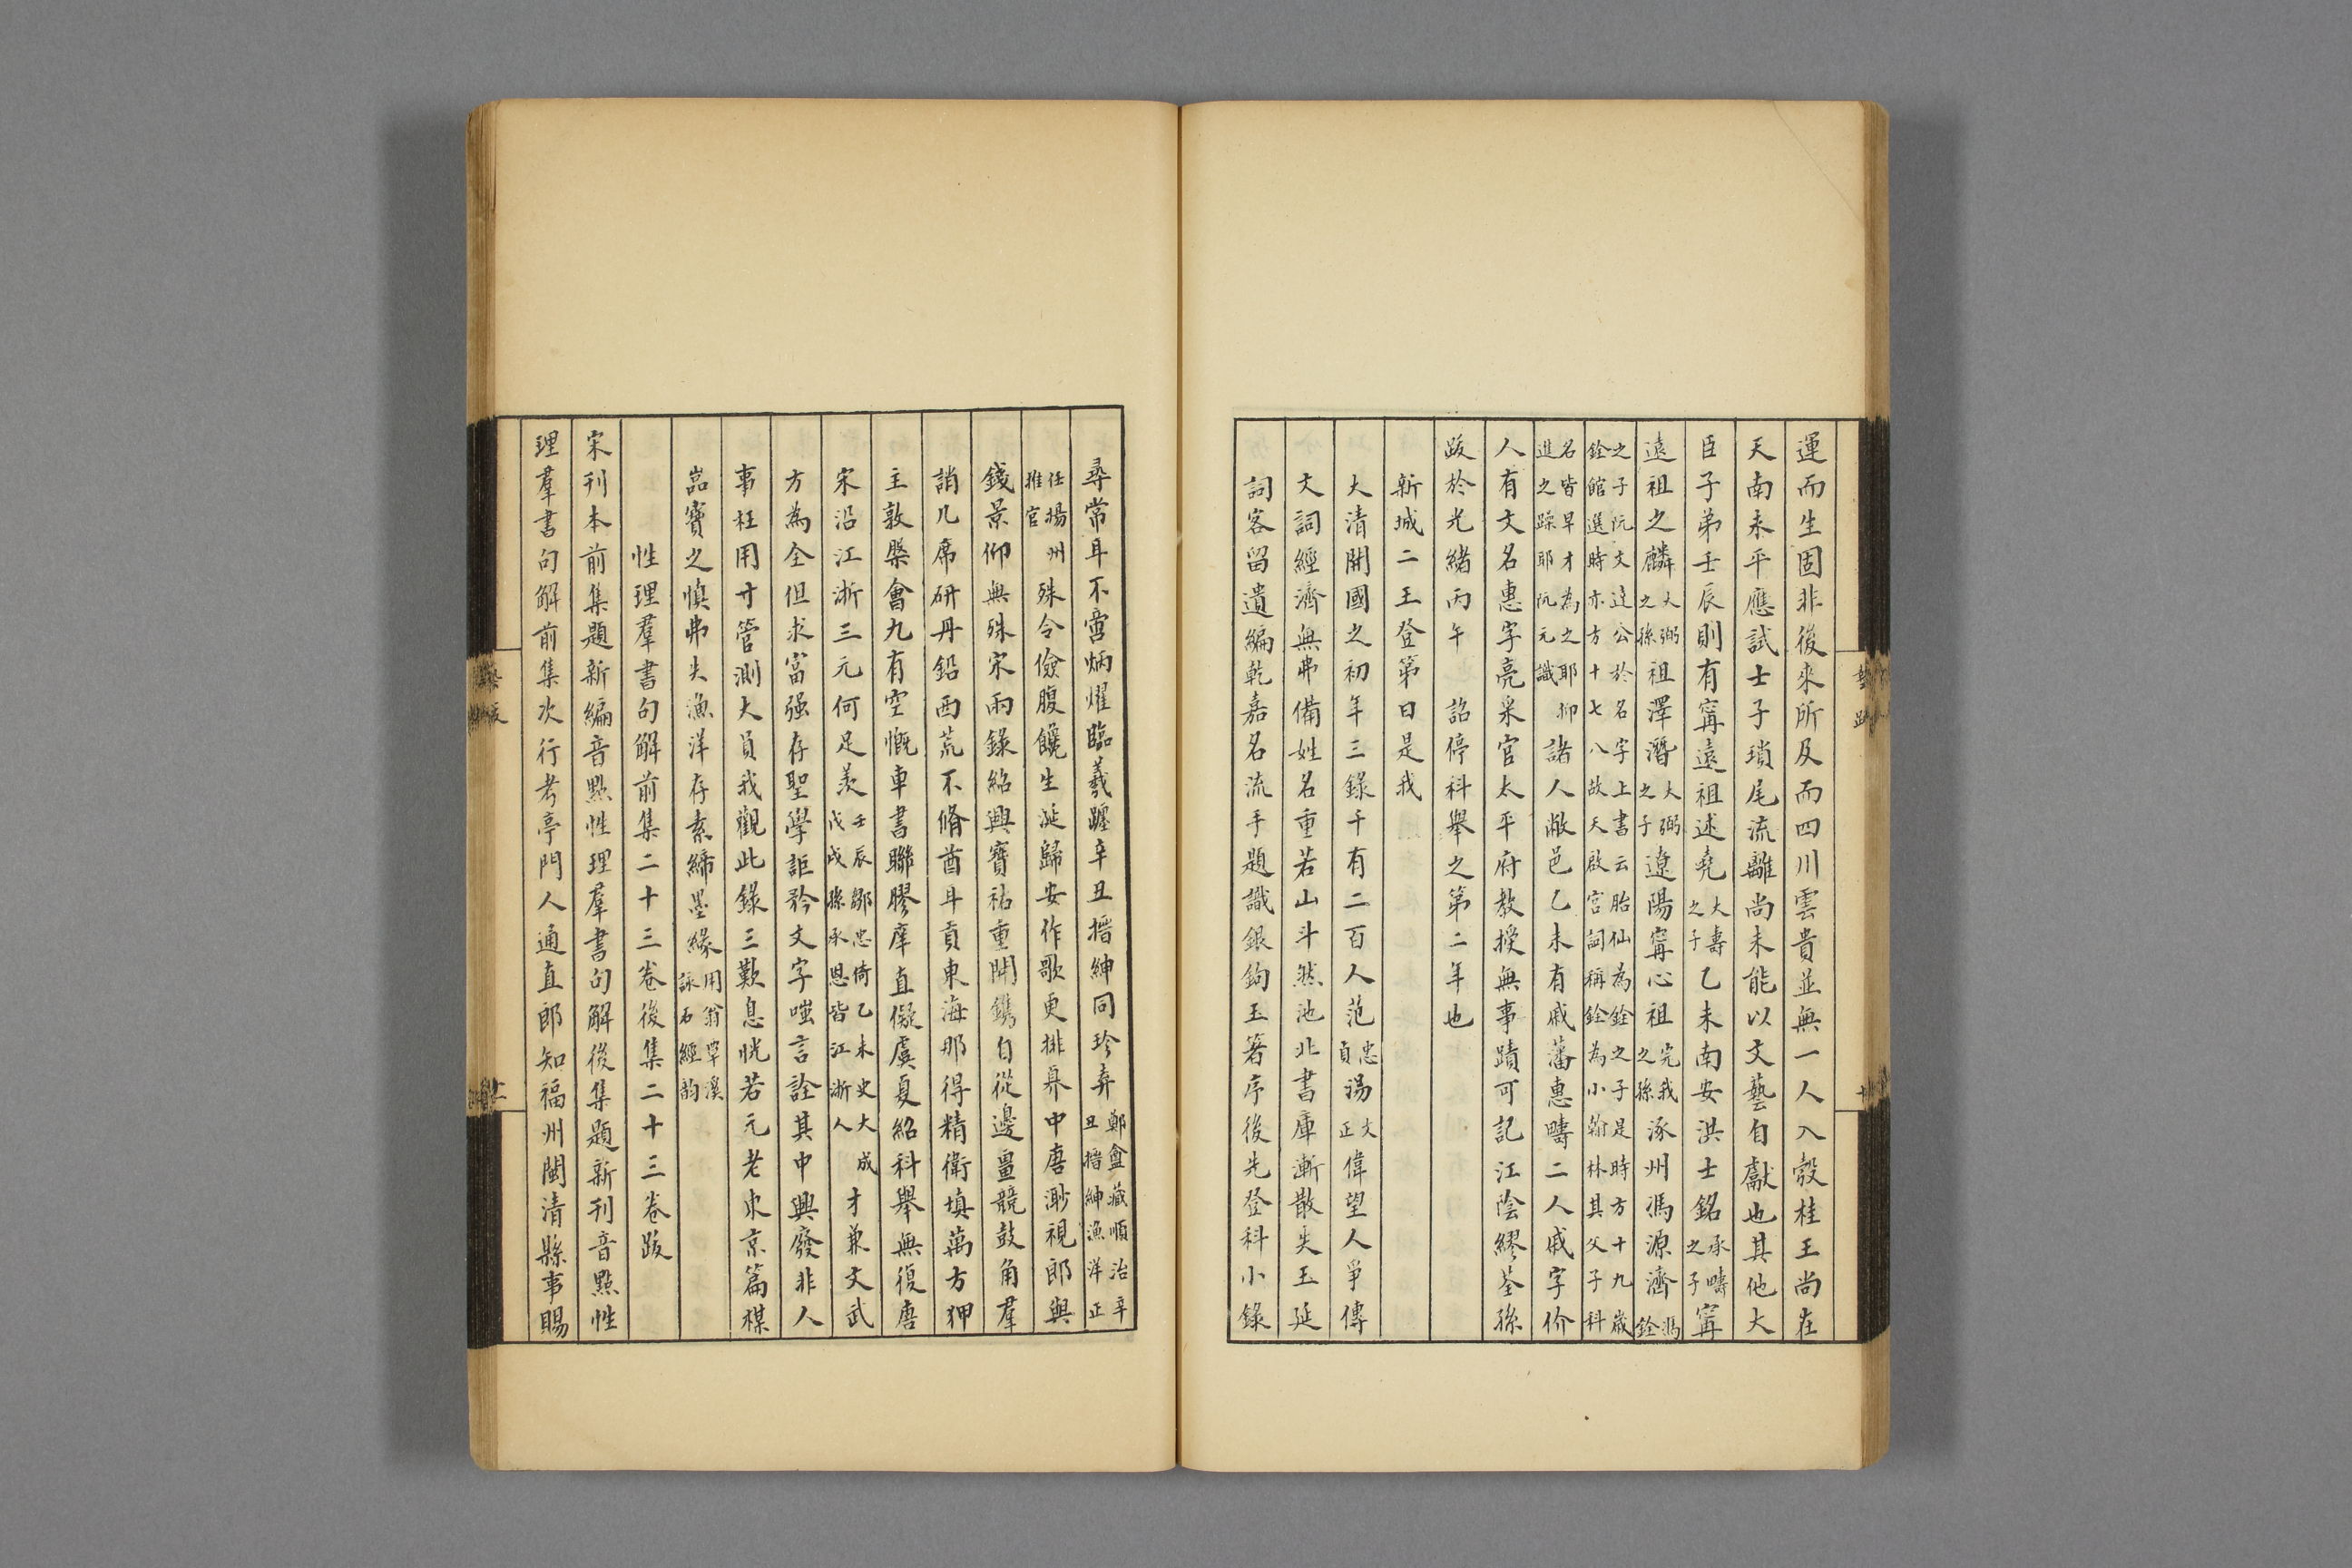 運而生固非後來所及而四川雲貴並無一人入彀桂王尚在
天南未平應試士子瑣尾流離尚未能以文藝自獻也其他大
臣子弟壬辰則有甯遠祖述堯大壽之子乙未南安洪士銘承疇之子甯
遠祖之麟大弼之孫祖澤潛大弼之子遼陽甯心祖完我之孫涿州馮源濟馮銓
之子阮文達公於名字上書云胎仙為銓之子是時方十九歲銓館選時亦方十七八故天啟宮詞稱銓為小翰林其父子科
名皆早才為之耶抑進之躁耶阮元識諸人敝邑乙未有戚藩惠疇二人戚字价
人有文名惠字亮采官太平府教授無事蹟可記江陰繆荃孫
跋於光緒丙午 詔停科舉之第二年也
新城二王登第日是我
大清開國之初年三錄千有二百人范忠貞湯文正偉望人爭傳
文詞經濟無弗備姓名重若山斗然池北書庫漸散失玉延
詞客留遺編乾嘉名流手題識銀鉤玉箸序後先登科小錄
尋常耳不啻炳燿臨羲躔辛丑搢紳同珍弆鄭盦藏順治辛丑搢紳漁洋正
任揚州推官殊令儉腹饞生涎歸安作歌更排奡中唐渺視郎與
錢景仰無殊宋兩錄紹興寶祐重開鐫自從邊畺競鼓角羣
誚几席研丹鉛西荒不脩酋耳貢東海那得精衛填萬方狎
主敦槃會九有空慨車書聯膠庠直儗虞夏紹科舉無復唐
宋沿江浙三元何足羨壬辰鄒忠倚乙未史大成戊戌孫承恩皆江浙人才兼文武
方為全但求富强存聖學詎矜文字嗤言詮其中興廢非人
事枉用寸管測大員我觀此錄三歎息恍若元老東京篇楳
嵓寶之慎弗失漁洋存素締墨緣用翁覃溪詠石經韵
性理羣書句解前集二十三卷後集二十三卷跋
宋刊本前集題新編音點性理羣書句解後集題新刊音點性
理羣書句解前集次行考亭門人通直郎知福州閩清縣事賜